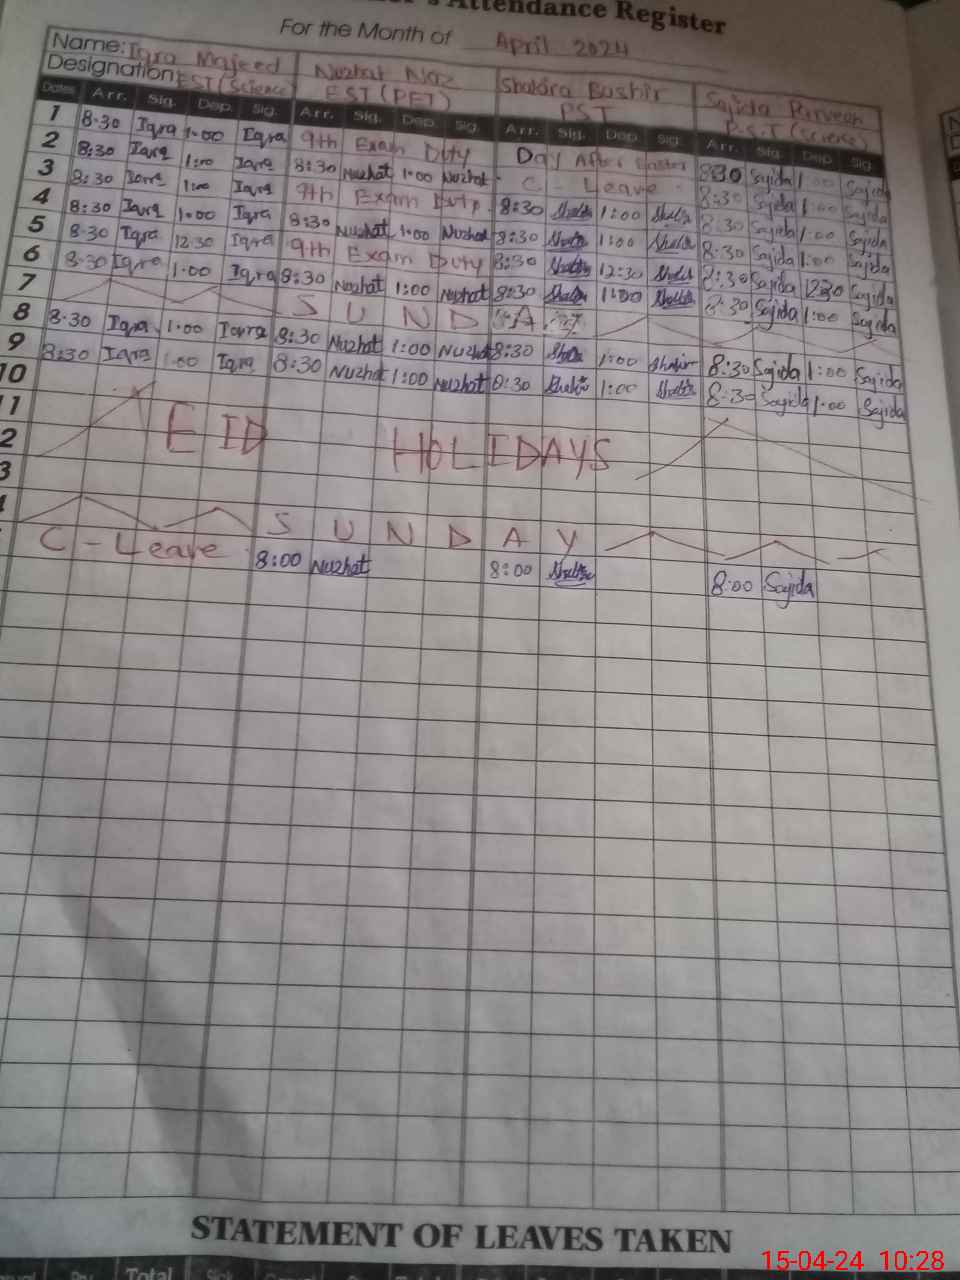 's Attendance Register
For the Month of April 2024
Name: Iqra Majeed Nuzhat Niaz Shakira Bushir Sajida Parveen
Designation: EST (Science) EST (PET) PST P.S.T (Science)
Dates Arr. Sig. Dep. Sig. Arr. Sig. Dep. Sig. Arr. Sig. Dep. Sig. Arr. Sig. Dep. Sig.
1 8:30 Iqra 1:00 Iqra 9th Exam Duty Day After Easter 8:30 Sajida 1:00 Sajida
2 8:30 Iqra 1:00 Iqra 8:30 Nuzhat 1:00 Nuzhat C - Leave 8:30 Sajida 1:00 Sajida
3 8:30 Iqra 1:00 Iqra 9th Exam Duty 8:30 Shakir 1:00 Shakir 8:30 Sajida 1:00 Sajida
4 8:30 Iqra 1:00 Iqra 8:30 Nuzhat 1:00 Nuzhat 8:30 Shakir 1:00 Shakir 8:30 Sajida 1:00 Sajida
5 8:30 Iqra 12:30 Iqra 9th Exam Duty 8:30 Shakir 12:30 Shakir 8:30 Sajida 1230 Sajida
6 8:30 Iqra 1:00 Iqra 8:30 Nuzhat 1:00 Nuzhat 8:30 Shakir 1:00 Shakir 8:30 Sajida 1:00 Sajida
7 S U N D A Y
8 8:30 Iqra 1:00 Iqra 8:30 Nuzhat 1:00 Nuzhat 8:30 Shakir 1:00 Shakir 8:30 Sajida 1:00 Sajida
9 8:30 Iqra 1:00 Iqra 8:30 Nuzhat 1:00 Nuzhat 8:30 Shakir 1:00 Shakir 8:30 Sajida 1:00 Sajida
10
11
2 EID HOLIDAYS
3
4 S U N D A Y
C - Leave 8:00 Nuzhat 8:00 Shakir 8:00 Sajida
STATEMENT OF LEAVES TAKEN
Total
15-04-24 10:28